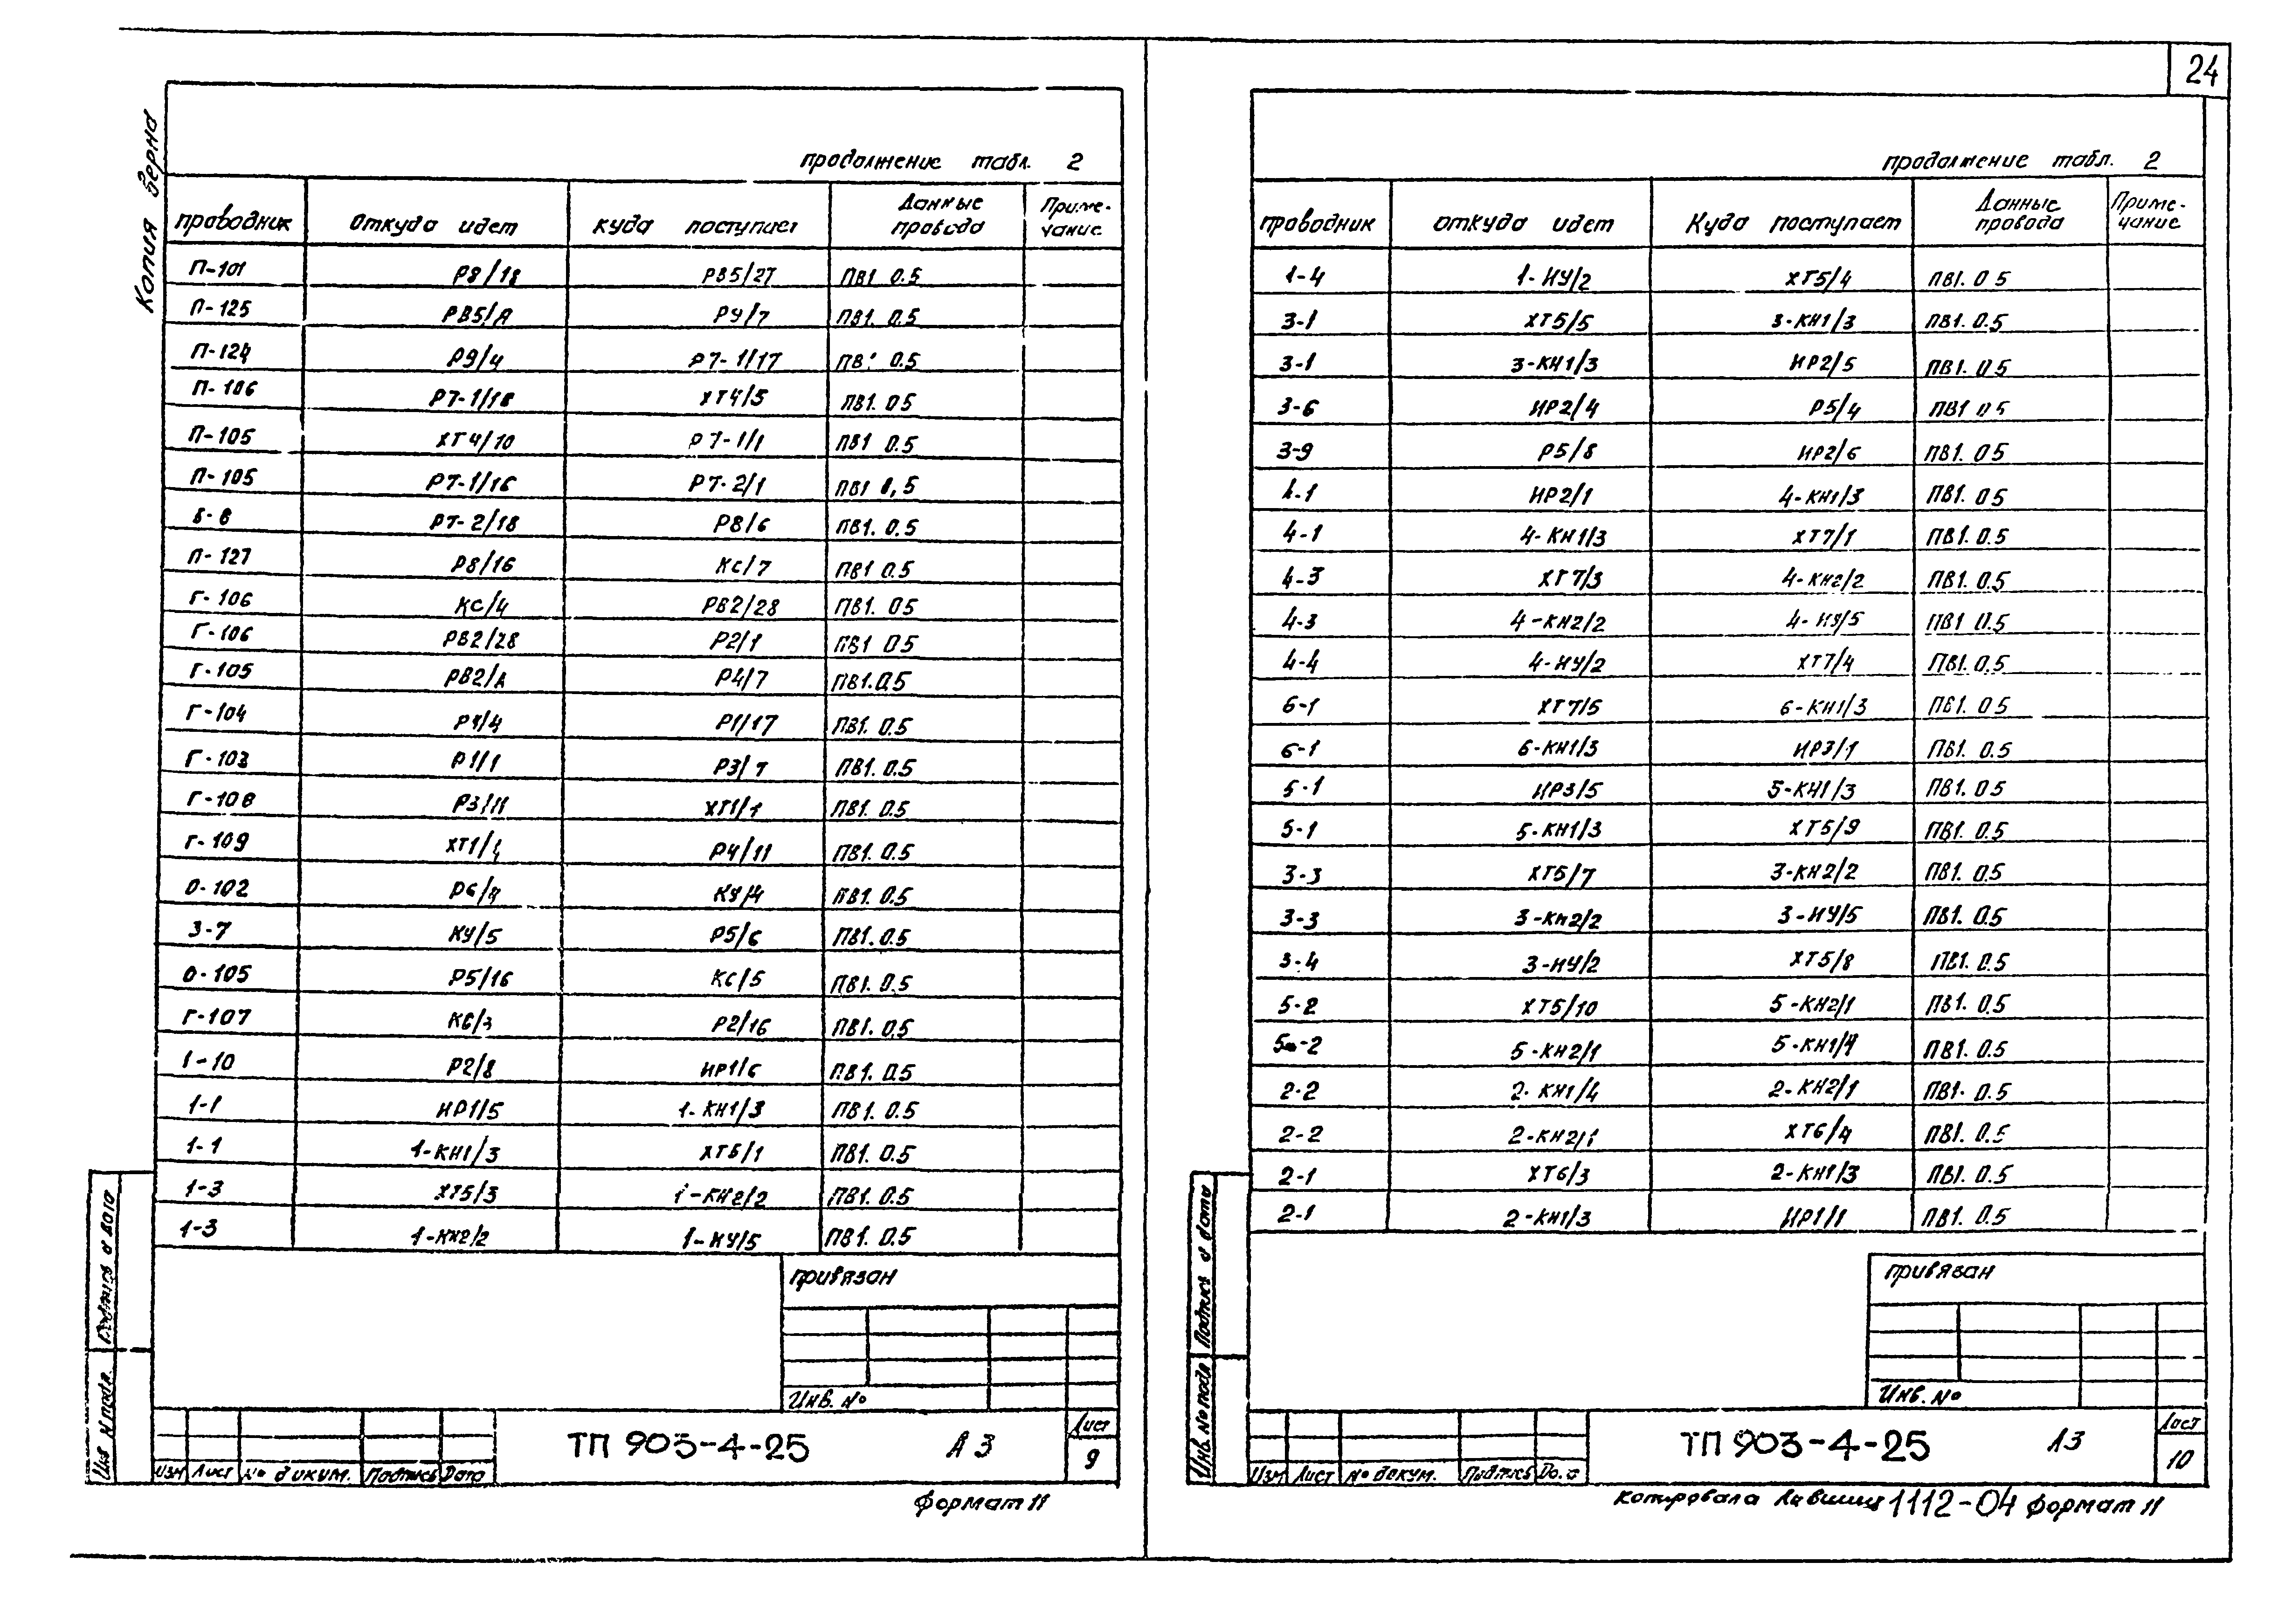 24
Копия верна
продолжение табл. 2
проводник откуда идет куда поступает Данные провода Примечание
П-101 Р8/18 РВ5/27 ПВ1 0.5
П-125 РВ5/А РУ/7 ПВ1. 0.5
П-124 Р9/4 Р7-1/17 ПВ1 0.5
П-106 Р7-1/18 ХТ4/5 ПВ1. 05
П-105 ХТ4/10 Р7-1/1 ПВ1 0.5
П-105 Р7-1/16 Р7-2/1 ПВ1 0,5
Р7-2/18 Р8/6 ПВ1. 0.5
П-127 Р8/16 КС/7 ПВ1 0.5
Г-106 КС/4 РВ2/28 ПВ1. 05
Г-106 РВ2/28 Р2/1 ПВ1 05
Г-105 РВ2/А Р4/7 ПВ1.0.5
Г-104 Р4/4 Р1/17 ПВ1. 0.5
Г-103 Р1/1 Р3/7 ПВ1. 0.5
Г-108 Р3/11 ХТ1/1 ПВ1. 0.5
Г-109 ХТ1/4 Р4/11 ПВ1. 0.5
О-102 Р6/4 КУ/4 ПВ1. 0.5
3-7 КУ/5 Р5/6 ПВ1. 0.5
О-105 Р5/16 КС/5 ПВ1. 0.5
Г-107 КС/3 Р2/16 ПВ1. 0.5
1-10 Р2/8 ИР1/6 ПВ1. 0.5
1-1 ИР1/5 1-КН1/3 ПВ1. 0.5
1-1 1-КН1/3 ХТ5/1 ПВ1. 0.5
1-3 ХТ5/3 1-КН2/2 ПВ1. 0.5
1-3 1-КН2/2 1-ИУ/5 ПВ1. 0.5
привязан
Инв. №
ТП 903-4-25 А3 Лист 9
Изм Лист № докум. Подпись Дата
Инв N подл. Подпись и дата
Формат 11
продолжение табл. 2
проводник откуда идет Куда поступает Данные провода Примечание
1-4 1-ИУ/2 ХТ5/4 ПВ1. 0 5
3-1 ХТ5/5 3-КН1/3 ПВ1. 0.5
3-1 3-КН1/3 ИР2/5 ПВ1. 0.5
3-6 ИР2/4 Р5/4 ПВ1 0.5
3-9 Р5/8 ИР2/6 ПВ1. 05
4-1 ИР2/1 4-КН1/3 ПВ1. 05
4-1 4-КН1/3 ХТ7/1 ПВ1. 0.5
4-3 ХТ7/3 4-КН2/2 ПВ1. 0.5
4-3 4-КН2/2 4-ИУ/5 ПВ1 0.5
4-4 4-ИУ/2 ХТ7/4 ПВ1. 0.5
6-1 ХТ7/5 6-КН1/3 ПВ1. 0 5
6-1 6-КН1/3 ИР3/1 ПВ1. 0.5
5-1 ИР3/5 5-КН1/3 ПВ1. 0 5
5-1 5-КН1/3 ХТ5/9 ПВ1. 0.5
3-3 ХТ5/7 3-КН2/2 ПВ1. 0.5
3-3 3-КН2/2 3-ИУ/5 ПВ1. 0.5
3-4 3-ИУ/2 ХТ5/8 ПВ1. 0.5
5-2 ХТ5/10 5-КН2/1 ПВ1. 0.5
5-2 5-КН2/1 5-КН1/4 ПВ1. 0.5
2-2 2-КН1/4 2-КН2/1 ПВ1. 0.5
2-2 2-КН2/1 ХТ6/4 ПВ1. 0.5
2-1 ХТ6/3 2-КН1/3 ПВ1. 0.5
2-1 2-КН1/3 ИР1/1 ПВ1. 0.5
привязан
Инв. №
ТП 903-4-25 А3 Лист 10
Изм Лист № докум. Подпись
Инв. № подл Подпись и дата
копировала 1112-04 Формат 11